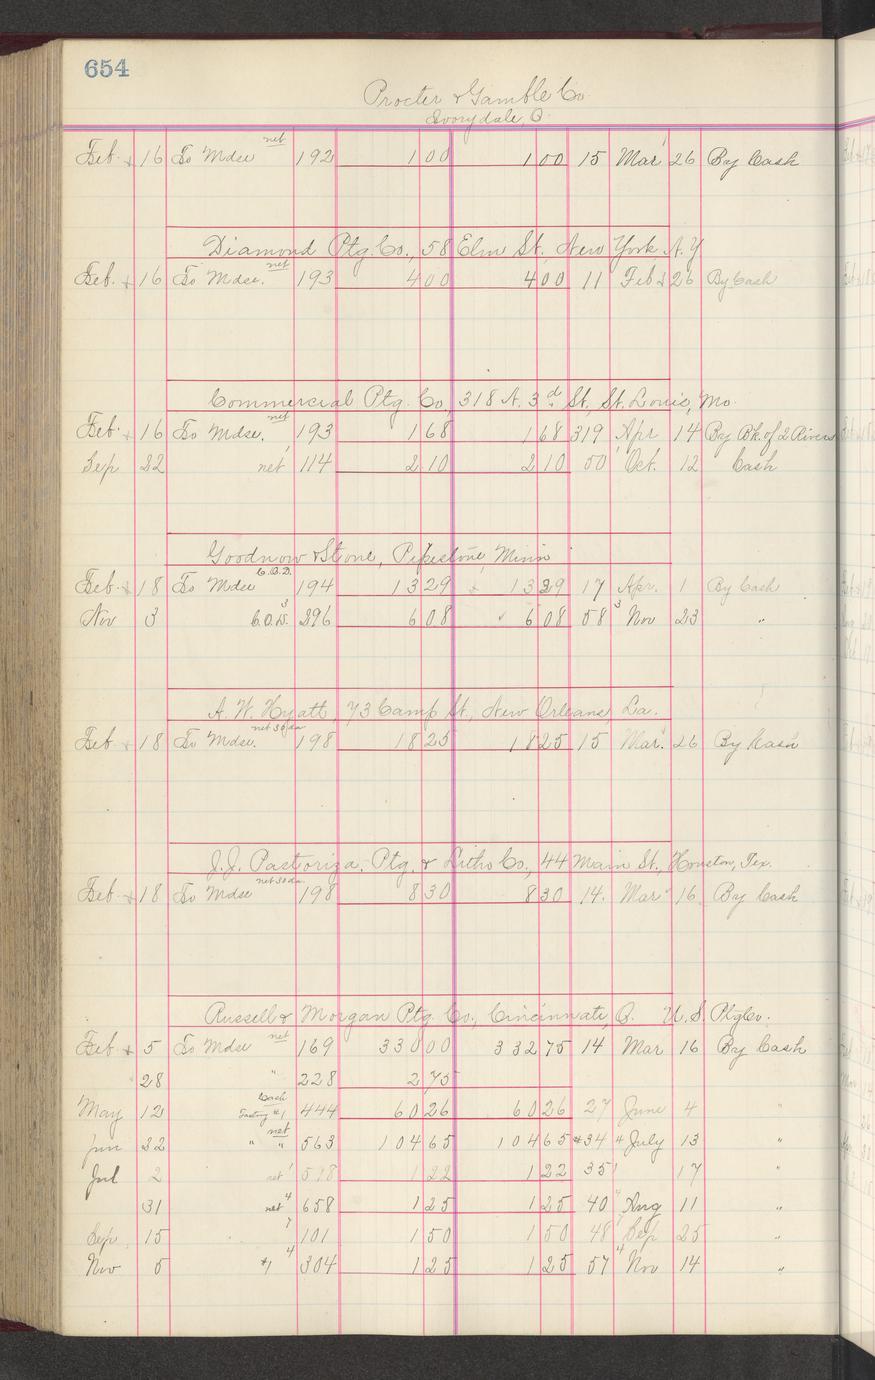 654
Procter & Gamble Co
Ivorydale, O.
Feb. 16 To Mdse net 192 1 00 1 00 15 Mar 26 By Cash
Diamond Ptg. Co., 58 Elm St. New York N.Y
Feb. 16 To Mdse. net 193 4 00 4 00 11 Feb 26 By Cash
Commercial Ptg. Co., 318 N. 3d St., St. Louis, Mo.
Feb. 16 To Mdse. net 193 1 68 1 68 319 Apr 14 By Bk. of 2 Rivers
Sep 22 net 114 2 10 2 10 50 Oct. 12 Cash
Goodnow & Stone, Pipestone, Minn
Feb. 18 To Mdse C.O.D. 194 13 29 13 29 17 Apr. 1 By Cash
Nov 3 C.O.D. 3 296 6 08 6 08 58 3 Nov 23 "
A. W. Hyatt, 73 Camp St., New Orleans, La.
Feb. 18 To Mdse. net 30 da 198 18 25 18 25 15 Mar. 26 By Cash
J.J. Pastoriza, Ptg. & Litho Co., 44 Main St., Houston, Tex.
Feb. 18 To Mdse net 30 da 198 8 30 8 30 14. Mar 16 By Cash
Russell & Morgan Ptg. Co., Cincinnati, O. U.S. Ptg Co.
Feb 5 To Mdse net 169 330 00 332 75 14 Mar 16 By Cash
28 " 228 2 75
May 12 Cash #1 444 60 26 60 26 27 June 4 "
Jun 22 " net " 563 104 65 104 65 #34 4 July 13 "
Jul 2 net 1 598 1 22 1 22 35 1 17 "
31 net 4 658 1 25 1 25 40 Aug 11 "
Sep 15 7 101 1 50 1 50 48 Sep 25 "
Nov 5 #1 4 304 1 25 1 25 57 4 Nov 14 "